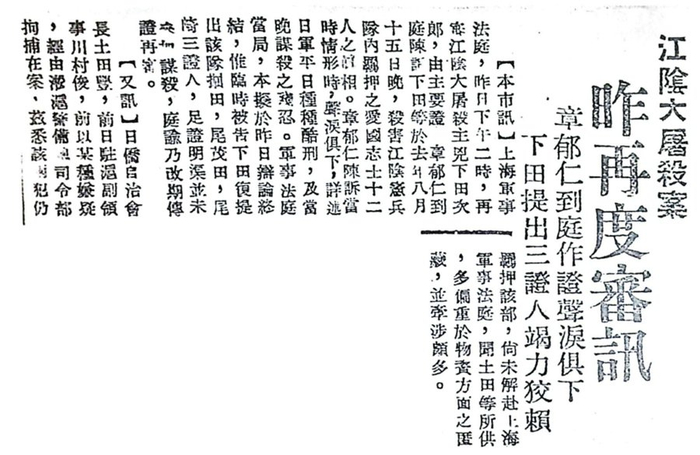 江陰大屠殺案
昨再度審訊
章郁仁到庭作證聲淚俱下
下田提出三證人竭力狡賴
【本市訊】上海軍事
法庭，昨日下午二時，再
審江陰大屠殺主兇下田次
郎，由主要證 章郁仁到
庭陳訴下田等於去年八月
十五日晚，殺害江陰憲兵
隊內羈押之愛國志士十二
人之眞相。章郁仁陳訴當
時情形時，聲淚俱下，詳述
日軍平日種種酷刑，及當
晚謀殺之殘忍。軍事法庭
當局，本擬於昨日辯論終
結，惟臨時被吿下田復提
出該隊掘田，尾茂田，尾
崎三證人，足證明渠並未
謀殺，庭諭乃改期傳
證再審。
【又訊】日僑自治會
長土田豐，前日駐滬副領
事川村俊，前以某種嫌疑
，經由淞滬警備 司令部
拘捕在案，茲悉該兩犯仍
羈押該部，尙未解赴上海
軍事法庭，聞土田等所供
，多偏重於物資方面之匿
藏，並牽涉頗多。